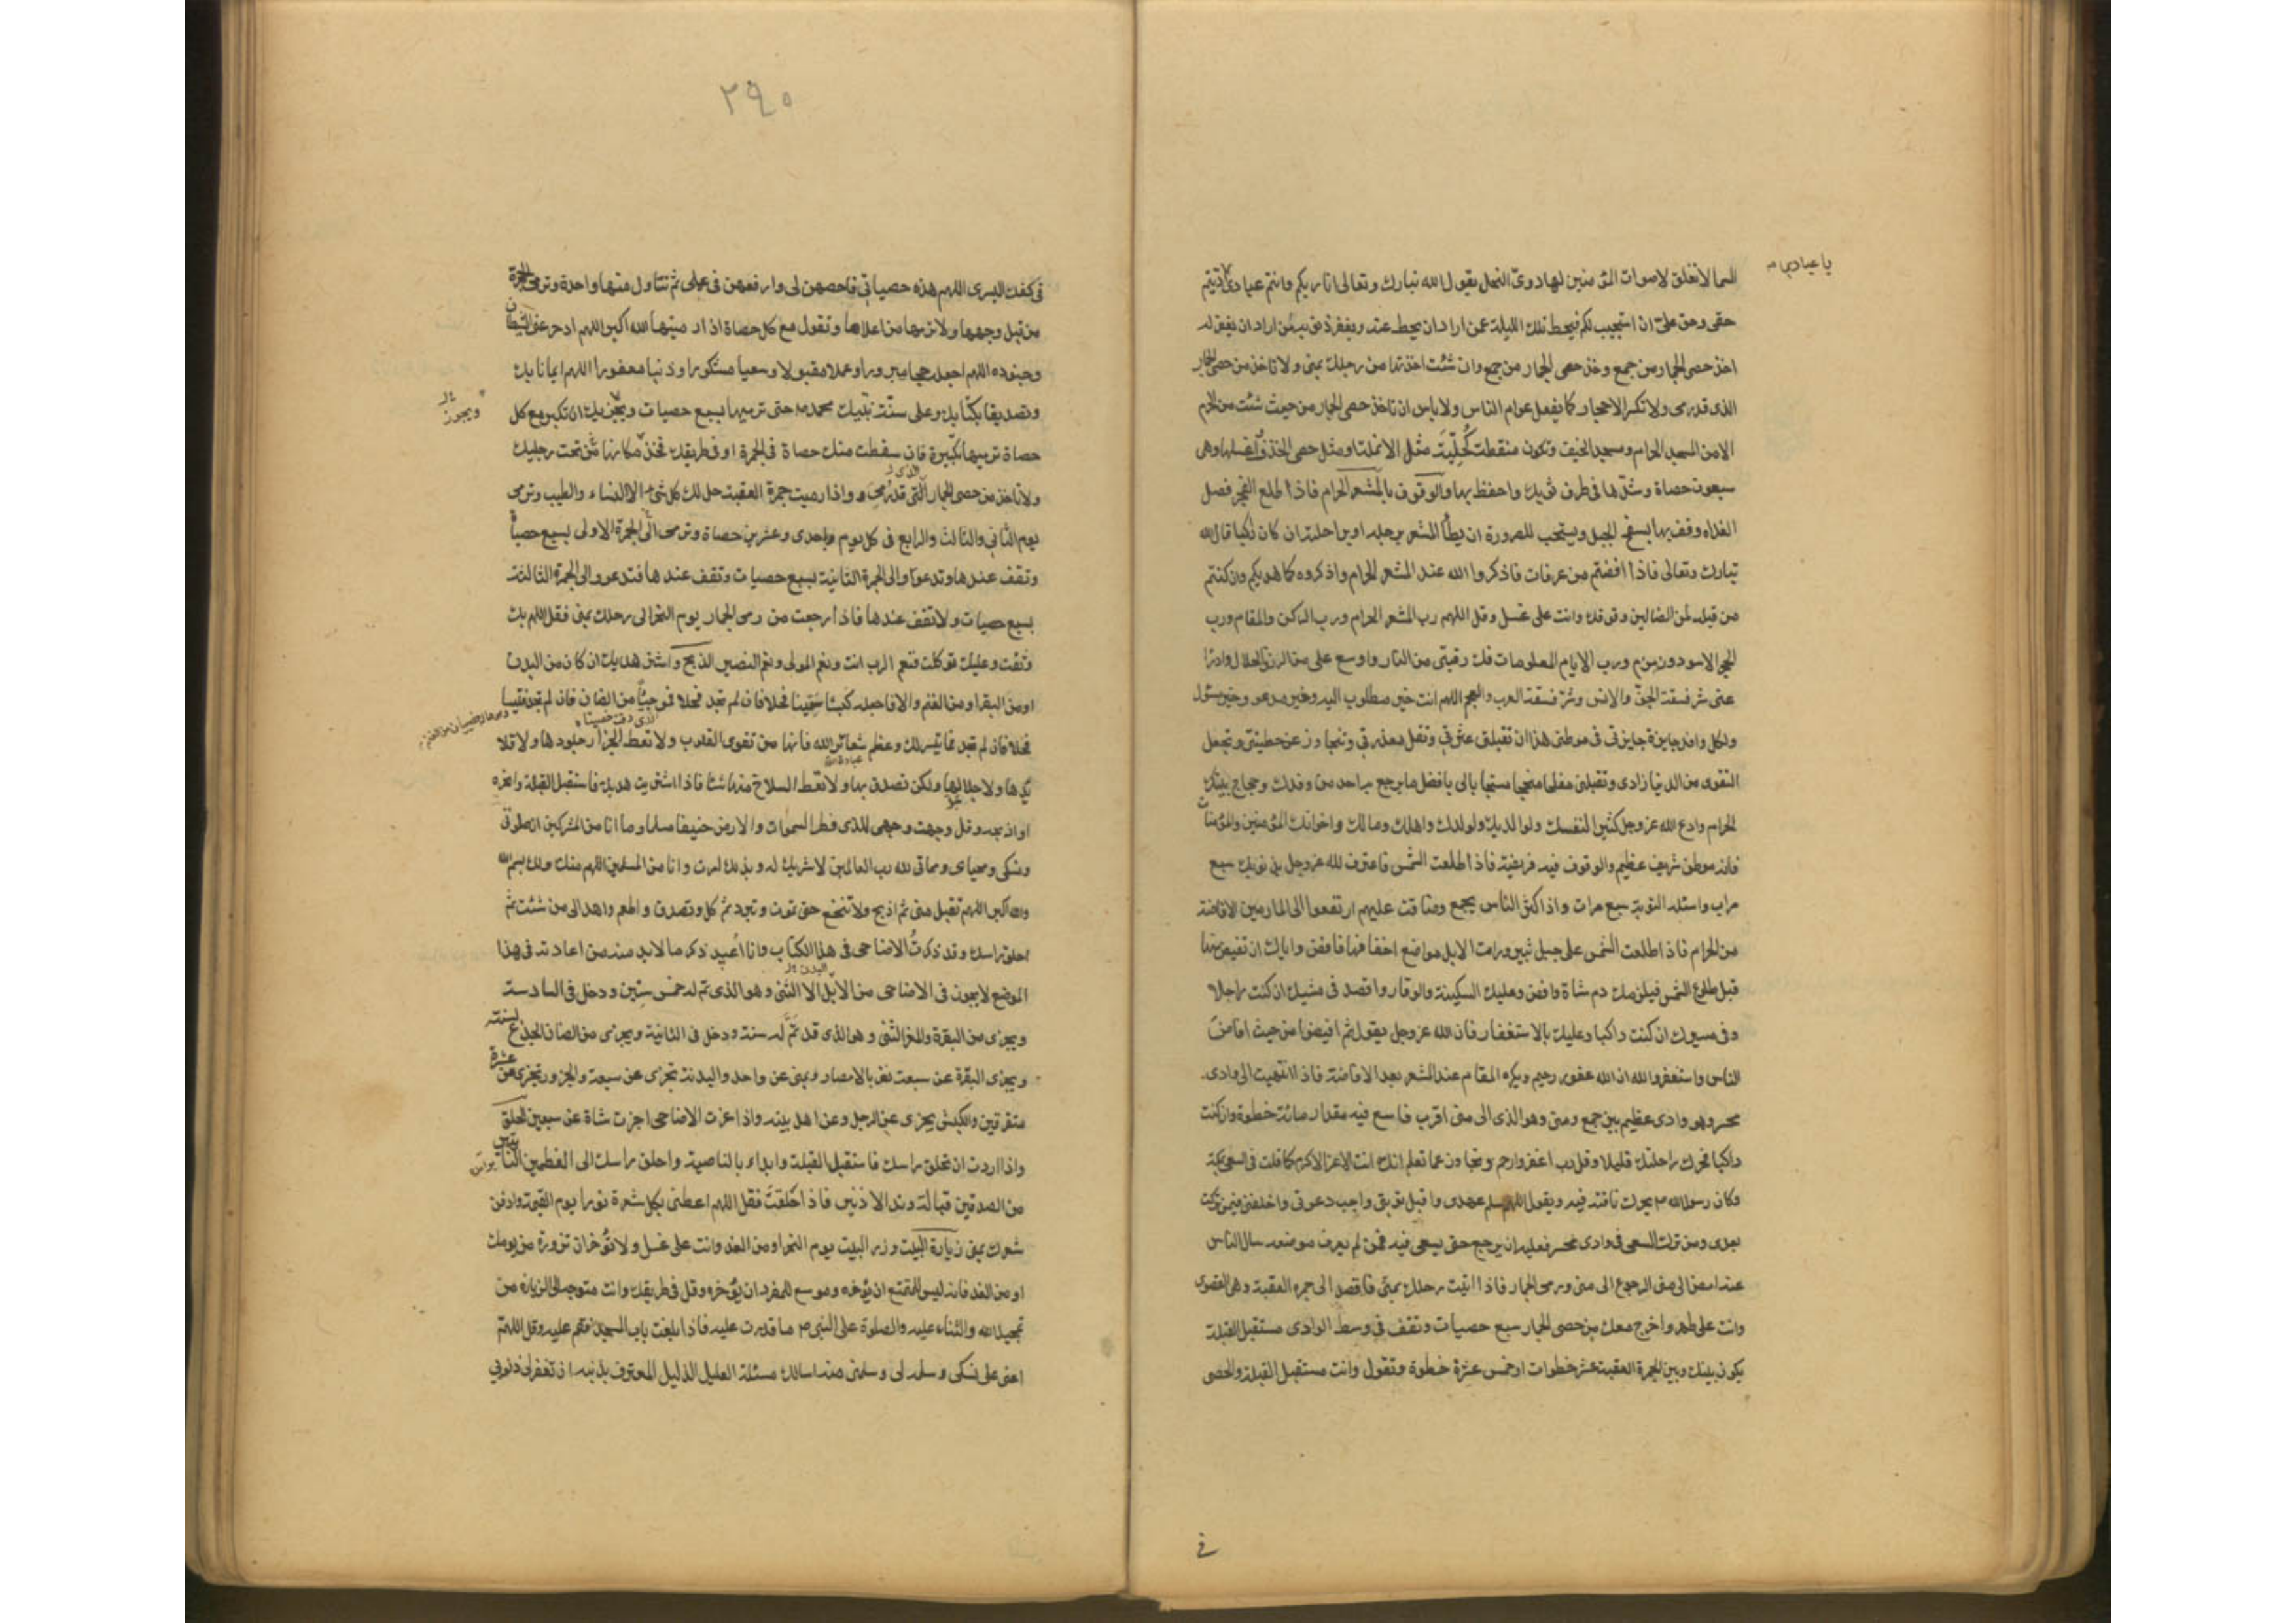 السما لا تغلق لاصوات المؤمنين لها دوىّ كدوىّ النحل يقول الله تبارك وتعالى انا ربكم وانتم عبادى اديتم
يا عبادى
حقى وحق علىّ ان استجيب لكم فيحط تلك الليلة عمن اراد ان يحط عنه ويغفر ذنوبه لمن اراد ان يغفر له
اخذ حصى الجمار من جمع وخذ حصى الجمار من جمع وان شئت اخذتها من رحلك بمنى ولا تاخذ من حصى الجمار
الذى قد رمى ولا تكسر الاحجار كما يفعل عوام الناس ولا باس ان تاخذ حصى الجمار من حيث شئت من الحرم
الا من المسجد الحرام ومسجد الخيف وتكون منقطة كُحليّة مثل الانملة او مثل حصى الخذف واغسلها وهى
سبعون حصاة وشدّها فى طرف ثوبك واحفظ بها والوقوف بالمشعر الحرام فاذا طلع الفجر فصل
الغداة وقف بها بسفح الجبل ويستحب للصرورة ان يطأ المشعر برجله او براحلته ان كان راكبا قال الله
تبارك وتعالى فاذا افضتم من عرفات فاذكروا الله عند المشعر الحرام واذكروه كما هديكم وان كنتم
من قبله لمن الضالين وقوفك وانت على غسل وقل اللهم رب المشعر الحرام ورب الركن والمقام ورب
الحجر الاسود وزمزم ورب الايام المعلومات فك رقبتى من النار واوسع على من الرزق الحلال وادرأ
عنى شر فسقة الجنّ والانس وشر فسقة العرب والعجم اللهم انت خير مطلوب اليه وخير مدعو وخير مسئول
ولكل وافد جايزة فاجعل جايزتى فى موطنى هذا ان تقيلنى عثرتى وتقبل معذرتى وتتجاوز عن خطيئتى وتجعل
التقوى من الدنيا زادى وتقلبنى مفلحا منجحا مستجابا لى بافضل ما يرجع به احد من وفدك وحجاج بيتك
الحرام وادع الله عز وجل كثيرا لنفسك ولوالديك ولولدك واهلك ومالك واخوانك المؤمنين والمؤمنات
فانه موطن شريف عظيم والوقوف فيه فريضة فاذا طلعت الشمس فاعترف لله عز وجل بذنوبك سبع
مرات واسئله التوبة سبع مرات واذا كثر الناس بجمع وضاقت عليهم ارتفعوا الى المازمين الافاضة
من الحرام فاذا طلعت الشمس على جبل ثبير ورات الابل مواضع اخفافها فافض واياك ان تفيض منها
قبل طلوع الشمس فيلزمك دم شاة وافض وعليك السكينة والوقار واقصد فى مشيك ان كنت راجلا
وفى مسيرك ان كنت راكبا وعليك بالاستغفار فان الله عز وجل يقول ثم افيضوا من حيث افاض
الناس واستغفروا الله ان الله غفور رحيم ويكره المقام عند المشعر بعد الافاضة فاذا انتهيت الى وادى
محسر وهو وادى عظيم بين جمع ومنى وهو الذى الى منى اقرب فاسع فيه مقدار مائة خطوة وان كنت
راكبا فحرك راحلتك قليلا وقل رب اغفر وارحم وتجاوز عما تعلم انك انت الاعز الاكرم كما قلت فى السعى بمكة
وكان رسول الله ص يحرك ناقته فيه ويقول اللهم سلم عهدى واقبل توبتى واجب دعوتى واخلفنى فيمن تركت
بعدى ومن ترك السعى فى وادى محسر فعليه ان يرجع حتى يسعى فيه فمن لم يعرف موضعه سال الناس
عنه امض الى منى الرجوع الى منى ورمى الجمار فاذا اتيت رحلك بمنى فاقصد الى جمرة العقبة وهى القصوى
وانت على طهر واخرج معك من حصى الجمار سبع حصيات وتقف فى وسط الوادى مستقبل القبلة
يكون بينك وبين الجمرة العقبة عشر خطوات او خمس عشرة خطوة وتقول وانت مستقبل القبلة والحصى
فى
٢٩٠
فى كفك اليسرى اللهم هذه حصياتى فاحصهن لى وارفعهن فى عملى ثم تتناول منها واحدة وترمى الجمرة
من قبل وجهها ولا ترمها من اعلاها وتقول مع كل حصاة اذا رميتها الله اكبر اللهم ادحر عنى الشيطان
وجنوده اللهم اجعله حجا مبرورا وعملا مقبولا وسعيا مشكورا وذنبا مغفورا اللهم ايمانا بك
وتصديقا بكتابك وعلى سنّة نبّيك محمد ص حتى ترميها بسبع حصيات ويجزيك ان تكبر مع كل
ويجوز
حصاة ترميها تكبيرة فان سقطت منك حصاة فى الجمرة او فى طريقك فخذ مكانها من تحت رجليك
ولا تاخذ من حصى الجمار التى قد رمى واذا رميت جمرة العقبة حل لك كل شئ الا النساء والطيب وترمى
الذى
يوم الثانى والثالث والرابع فى كل يوم باحدى وعشرين حصاة وترمى الى الجمرة الاولى بسبع حصيات
وتقف عندها وتدعو والى الجمرة الثانية بسبع حصيات وتقف عندها فتدعو والى الجمرة الثالثة
بسبع حصيات ولا تقف عندها فاذا رجعت من رمى الجمار يوم النحر الى رحلك بمنى فقل اللهم بك
وثقت وعليك توكلت فنعم الرب انت ونعم المولى ونعم النصير الذبح واشتر هديك ان كان من البدن
او من البقر او من الغنم والا فاجعله كبشا سمينا فحلا فان لم تجد فحلا فموجئاً من الضان فان لم تجد فتيسا
فحلا فان لم تجد فما تيسر لك وعظم شعائر الله فانها من تقوى القلوب ولا تعط الجزار جلودها ولا قلا
يدها ولا جلالها ولكن تصدق بها ولا تعط السلاخ منها شيئا فاذا اشتريت هديك فاستقبل القبلة وانحره
او اذبحه وقل وجهت وجهى للذى فطر السموات والارض حنيفا مسلما وما انا من المشركين ان صلوتى
ونسكى ومحياى ومماتى لله رب العالمين لا شريك له وبذلك امرت وانا من المسلمين اللهم منك ولك بسم الله
والله اكبر اللهم تقبل منى ثم اذبح ولا تنخع حتى تموت وتبرد ثم كل وتصدق واطعم واهد الى من شئت ثم
احلق راسك وقد ذكرتُ الاضاحى فى هذا الكتاب وانا أعيد ذكر ما لابد منه من اعادته فى هذا
الموضع لا يجوز فى الاضاحى من الابل الا الثنى وهو الذى تم له خمس سنين ودخل فى السادسة
البدن
ويجزى من البقرة والمعز الثنى وهو الذى قد تمّ له سنة ودخل فى الثانية ويجزى من الضان الجذع لسنة
ويجزى البقرة عن سبعة نفر بالامصار وبمنى عن واحد والبدنة تجزى عن سبعة والجزور تجزى عن عشرة
متفرقين والكبش يجزى عن الرجل وعن اهل بيته واذا عزت الاضاحى اجزت شاة عن سبعين الحلق
واذا اردت ان تحلق راسك فاستقبل القبلة وابداء بالناصية واحلق راسك الى العظمين الناتيين
من الصدغين قبالة وتد الاذنين فاذا حلقت فقل اللهم اعطنى بكل شعرة نورا يوم القيمة وادفن
شعرك بمنى زيارة البيت وزر البيت يوم النحر او من الغد وانت على غسل ولا تؤخر ان تزوره من يومك
او من الغد فانه ليس للمتمتع ان يؤخره وموسع للمفرد ان يؤخره وقل فى طريقك وانت متوجه الى الزيارة من
تمجيد الله والثناء عليه والصلوة على النبى ص ما قدرت عليه فاذا بلغت باب المسجد فقم عليه وقل اللهم
اعنى على نسكى وسلمه لى وسلمنى منه اسالك مسئلة العليل الذليل المعترف بذنبه ان تغفر لى ذنوبى